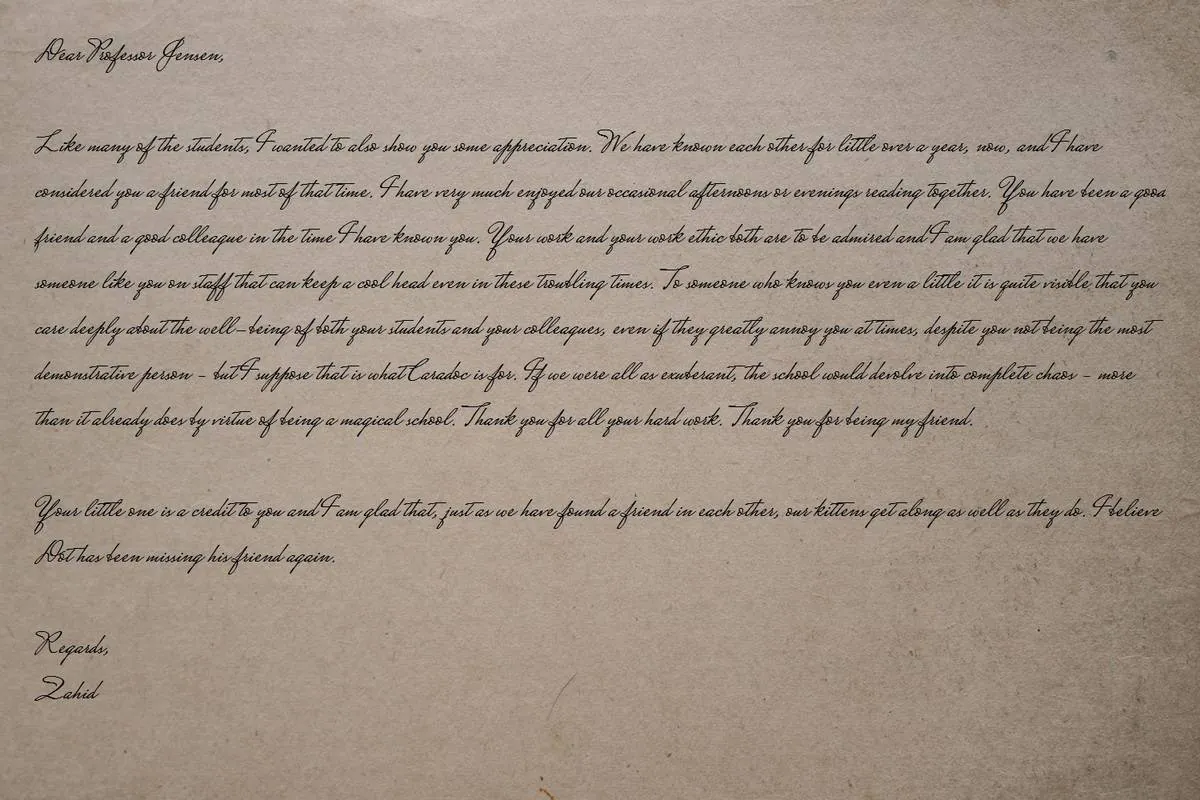 Dear Professor Jensen,
Like many of the students, I wanted to also show you some appreciation. We have known each other for little over a year, now, and I have
considered you a friend for most of that time. I have very much enjoyed our occasional afternoons or evenings reading together. You have been a good
friend and a good colleague in the time I have known you. Your work and your work ethic both are to be admired and I am glad that we have
someone like you on staff that can keep a cool head even in these troubling times. To someone who knows you even a little it is quite visible that you
care deeply about the well-being of both your students and your colleagues, even if they greatly annoy you at times, despite you not being the most
demonstrative person - but I suppose that is what Caradoc is for. If we were all as exuberant, the school would devolve into complete chaos - more
than it already does by virtue of being a magical school. Thank you for all your hard work. Thank you for being my friend.
Your little one is a credit to you and I am glad that, just as we have found a friend in each other, our kittens get along as well as they do. I believe
Dot has been missing his friend again.
Regards,
Zahid